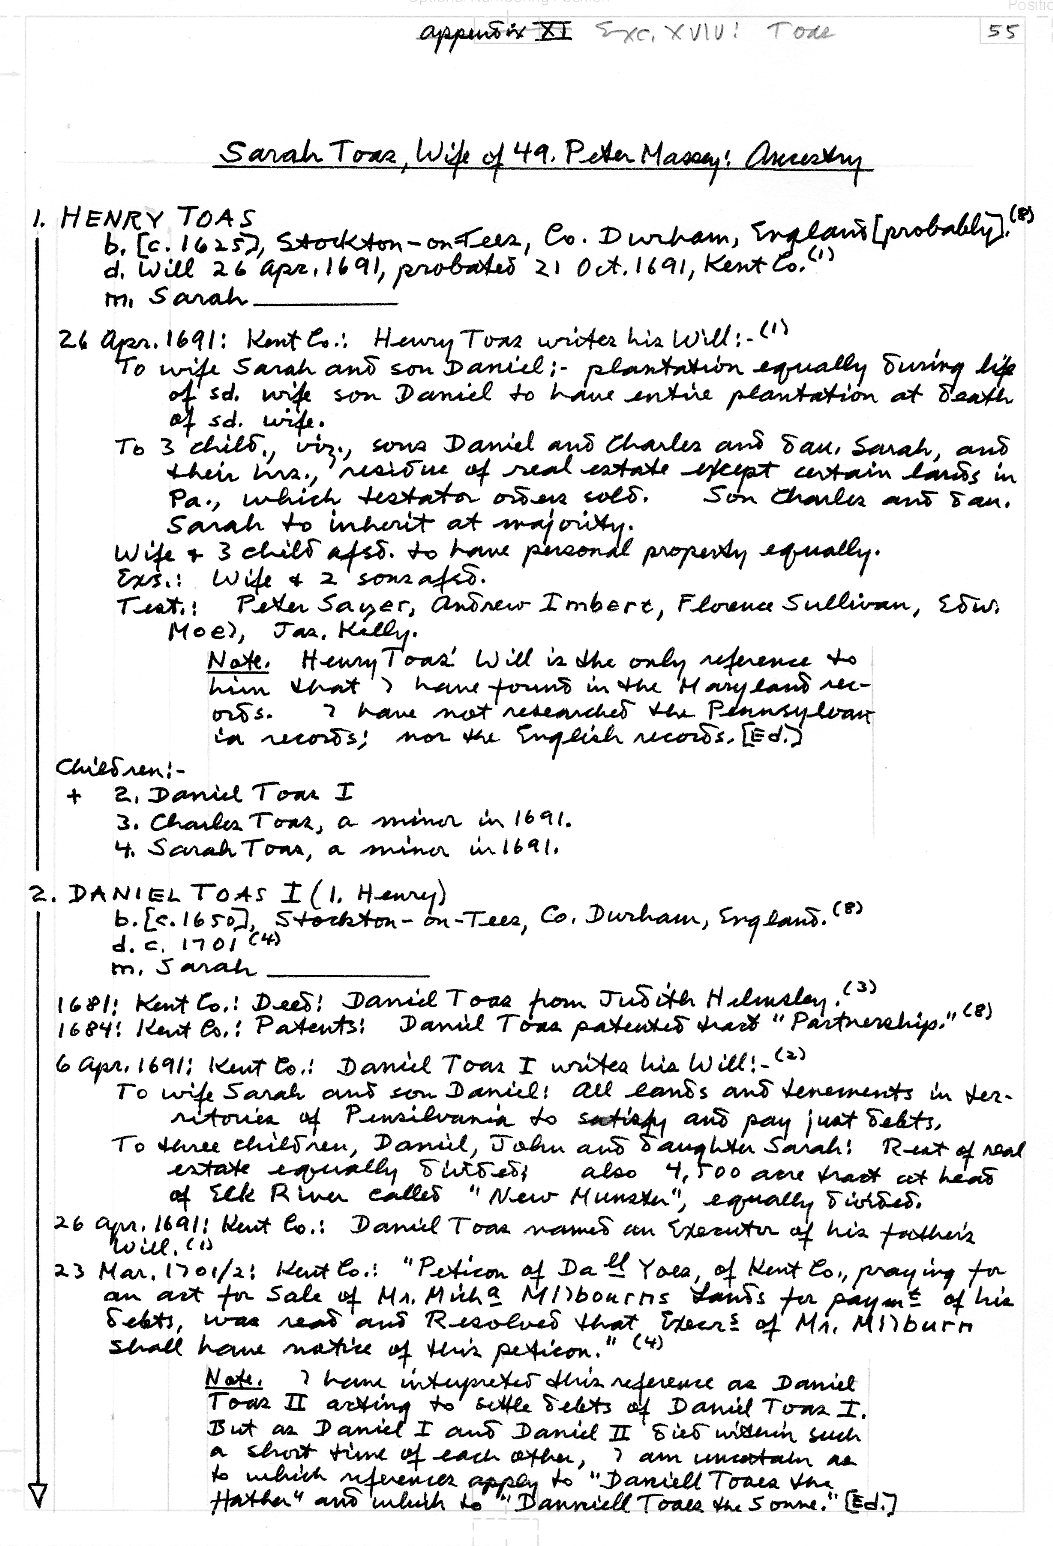 appendix XI Exc. XVIV: Toas
55
Sarah Toas, Wife of 49. Peter Massey: Ancestry
1. HENRY TOAS
b. [c. 1625], Stockton-on-Tees, Co. Durham, England [probably].(8)
d. Will 26 Apr. 1691, probated 21 Oct. 1691, Kent Co.(1)
m. Sarah
26 Apr. 1691: Kent Co.: Henry Toas writes his Will:-(1)
To wife Sarah and son Daniel:- plantation equally during life
of sd. wife son Daniel to have entire plantation at death
of sd. wife.
To 3 child., viz., sons Daniel and Charles and dau. Sarah, and
their hrs., residue of real estate except certain lands in
Pa., which testator orders sold. Son Charles and dau.
Sarah to inherit at majority.
Wife + 3 child afsd. to have personal property equally.
Exs.: Wife + 2 sons afsd.
Test.: Peter Sayer, Andrew Imbert, Florence Sullivan, Edw.
Moe), Jas. Kelly.
Note. Henry Toas' Will is the only reference to
him that I have found in the Maryland rec-
ords. I have not researched the Pennsylvan
ia records; nor the English records. [Ed.]
Children:-
+ 2. Daniel Toas I
3. Charles Toas, a minor in 1691.
4. Sarah Toas, a minor in 1691.
2. DANIEL TOAS I (1. Henry)
b. [c. 1650], Stockton-on-Tees, Co. Durham, England.(8)
d. c. 1701(4)
m. Sarah
1681: Kent Co.: Deed: Daniel Toas from Judith Helmsley.(3)
1684: Kent Co.: Patents: Daniel Toas patented tract "Partnership."(8)
6 Apr. 1691: Kent Co.: Daniel Toas I writes his Will:-(2)
To wife Sarah and son Daniel: All lands and tenements in ter-
ritories of Pensilvania to satisfy and pay just debts.
To three children, Daniel, John and daughter Sarah: Rest of real
estate equally divided; also 4,500 acre tract at head
of Elk River called "New Munster", equally divided.
26 Apr. 1691: Kent Co.: Daniel Toas named an Executor of his father's
Will.(1)
23 Mar. 1701/2: Kent Co.: "Peticon of Dall Yoes, of Kent Co., praying for
an act for Sale of Mr. Micha Milbourns Lands for paymt of his
debts, was read and Resolved that Execrs of Mr. Milburn
shall have notice of this peticon." (4)
Note. I have interpreted this reference as Daniel
Toas II acting to settle debts of Daniel Toas I.
But as Daniel I and Daniel II died within such
a short time of each other, I am uncertain as
to which references apply to "Daniell Toaes the
ffather" and which to "Danniell Toaes the Sonne." [Ed.]